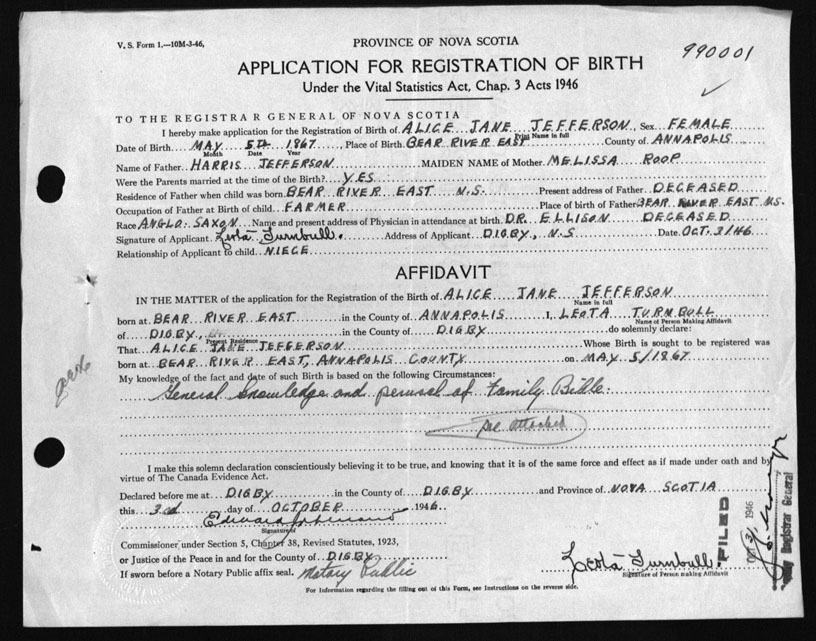 V. S. Form 1.—10M-3-46,
PROVINCE OF NOVA SCOTIA
990001
APPLICATION FOR REGISTRATION OF BIRTH
Under the Vital Statistics Act, Chap. 3 Acts 1946
TO THE REGISTRAR GENERAL OF NOVA SCOTIA
I hereby make application for the Registration of Birth of ALICE JANE JEFFERSON, Sex FEMALE
Print Name in full
Date of Birth MAY 5th 1867 Place of Birth BEAR RIVER EAST County of ANNAPOLIS
Month Date Year
Name of Father HARRIS JEFFERSON MAIDEN NAME of Mother MELISSA ROOP
Were the Parents married at the time of the Birth? YES
Residence of Father when child was born BEAR RIVER EAST N.S. Present address of Father DECEASED
Occupation of Father at Birth of child FARMER Place of birth of Father BEAR RIVER EAST N.S.
Race ANGLO-SAXON Name and present address of Physician in attendance at birth DR. ELLISON DECEASED
Signature of Applicant Leota Turnbull. Address of Applicant DIGBY, N.S Date OCT. 3/46
Relationship of Applicant to child NIECE
AFFIDAVIT
IN THE MATTER of the application for the Registration of the Birth of ALICE JANE JEFFERSON
Name in full
born at BEAR RIVER EAST in the County of ANNAPOLIS I, LEOTA TURNBULL
Name of Person Making Affidavit
of DIGBY, in the County of DIGBY do solemnly declare:
Present Residence
That ALICE JANE JEFFERSON Whose Birth is sought to be registered was
born at BEAR RIVER EAST, ANNAPOLIS COUNTY on MAY 5/1867
My knowledge of the fact and date of such Birth is based on the following Circumstances:
General knowledge and perusal of Family Bible.
See attached
I make this solemn declaration conscientiously believing it to be true, and knowing that it is of the same force and effect as if made under oath and by
virtue of The Canada Evidence Act.
Declared before me at DIGBY in the County of DIGBY and Province of NOVA SCOTIA
this 3rd day of OCTOBER 1946
Signature of
Commissioner under Section 5, Chapter 38, Revised Statutes, 1923,
or Justice of the Peace in and for the County of DIGBY
If sworn before a Notary Public affix seal. Notary Public
Leota Turnbull.
Signature of Person making Affidavit
For Information regarding the filling out of this Form, see Instructions on the reverse side.
FILED
OCT 31 1946
Registrar General